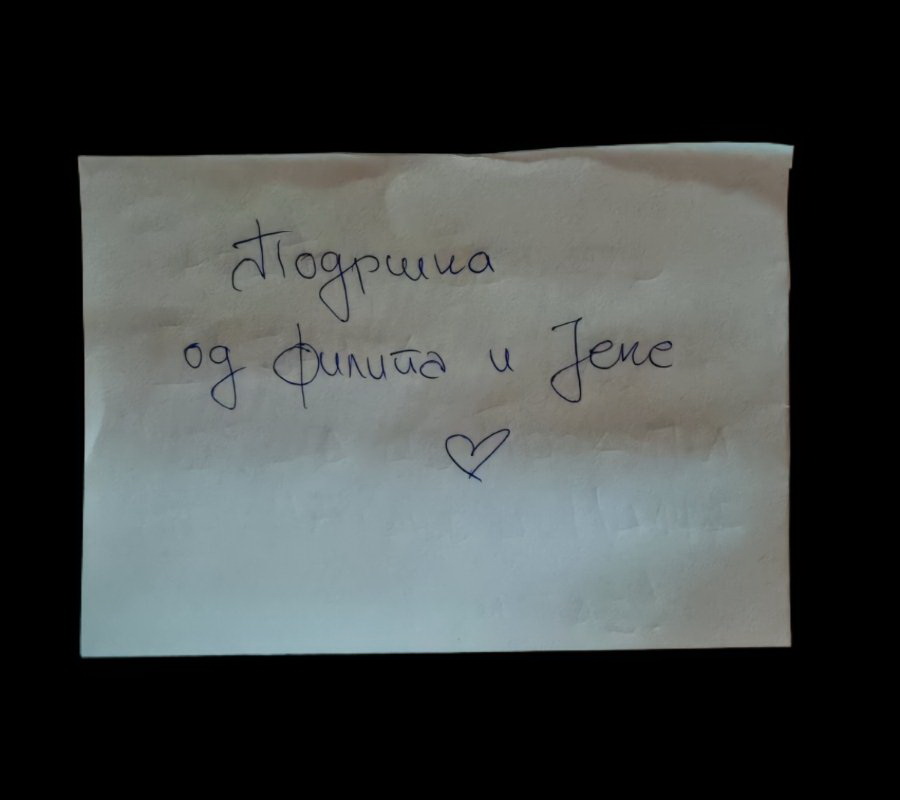 Подршка
од Филипа и Јеке